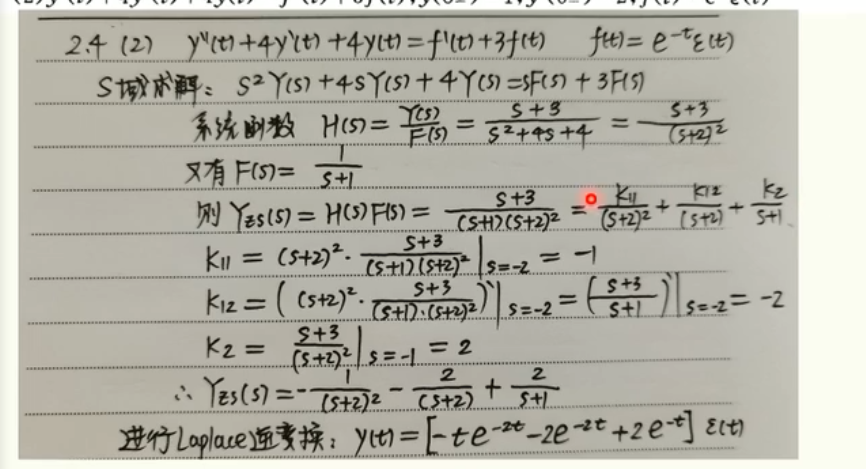 2.4 (2) y''(t)+4y'(t)+4y(t)=f'(t)+3f(t) f(t)=e^{-t}ε(t)
S域求解: S²Y(S)+4SY(S)+4Y(S)=SF(S)+3F(S)
系统函数 H(S)=\frac{Y(S)}{F(S)}=\frac{S+3}{S²+4S+4}=\frac{S+3}{(S+2)²}
又有F(S)=\frac{1}{S+1}
则 Y_{ZS}(S)=H(S)F(S)=\frac{S+3}{(S+1)(S+2)²}=\frac{K_{11}}{(S+2)²}+\frac{K_{12}}{(S+2)}+\frac{K_2}{S+1}
K_{11}=(S+2)²·\frac{S+3}{(S+1)(S+2)²}|_{S=-2}=-1
K_{12}=((S+2)²·\frac{S+3}{(S+1)·(S+2)²})'|_{S=-2}=(\frac{S+3}{S+1})'|_{S=-2}=-2
K_2=\frac{S+3}{(S+2)²}|_{S=-1}=2
∴ Y_{ZS}(S)=-\frac{1}{(S+2)²}-\frac{2}{(S+2)}+\frac{2}{S+1}
进行Laplace逆变换: y(t)=[-te^{-2t}-2e^{-2t}+2e^{-t}]ε(t)